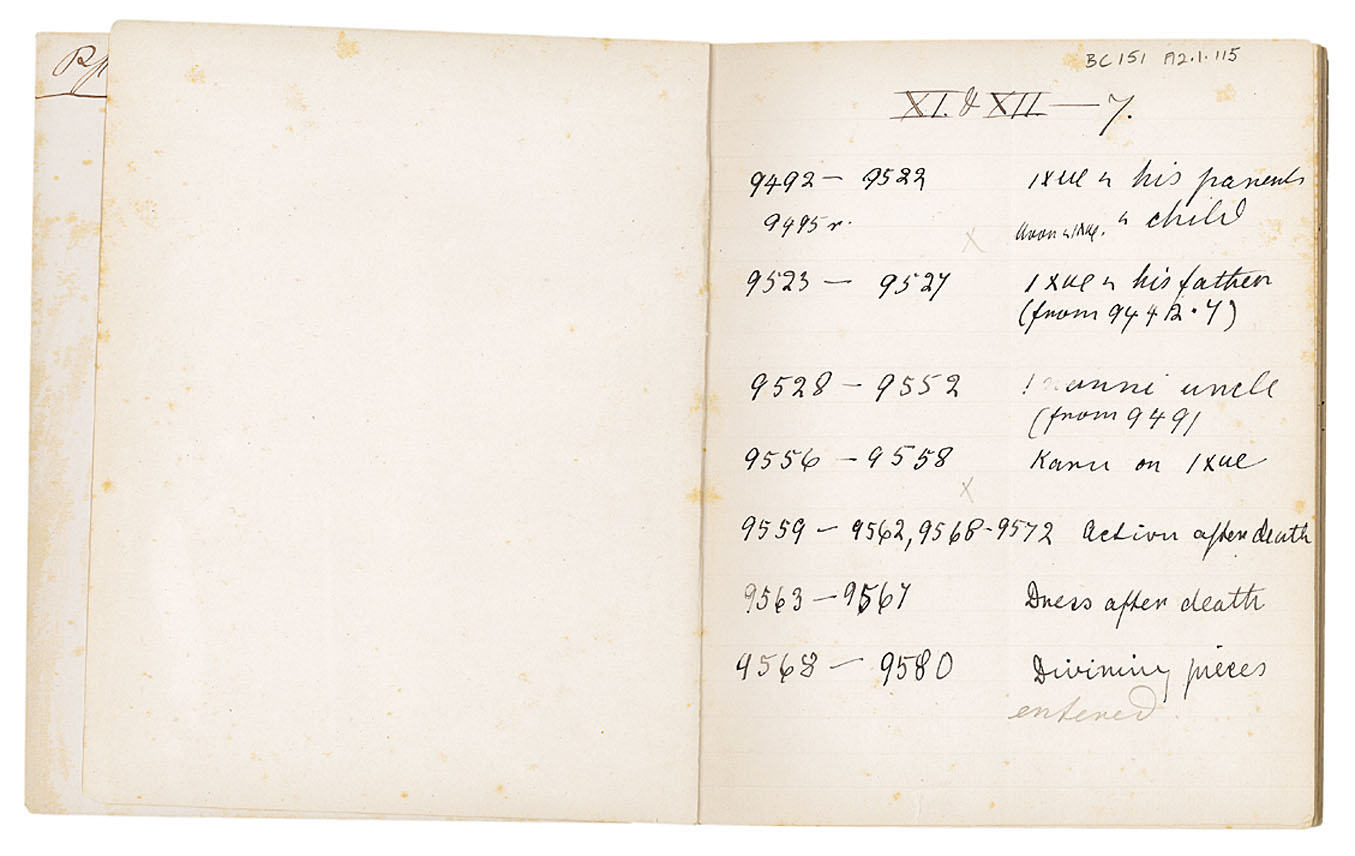 BC 151 A2.1.115
XI. & XII. — 7.
9492 — 9522 !xue & his parents
9495 r. & child
x
9523 — 9527 !xue & his father
(from 9442.7)
9528 — 9552 ! uncle
(from 9491
9556 — 9558 Karu on !xue
x
9559 — 9562, 9568-9572 Action after death
9563 — 9567 Dress after death
9568 — 9580 Divining pieces
entered